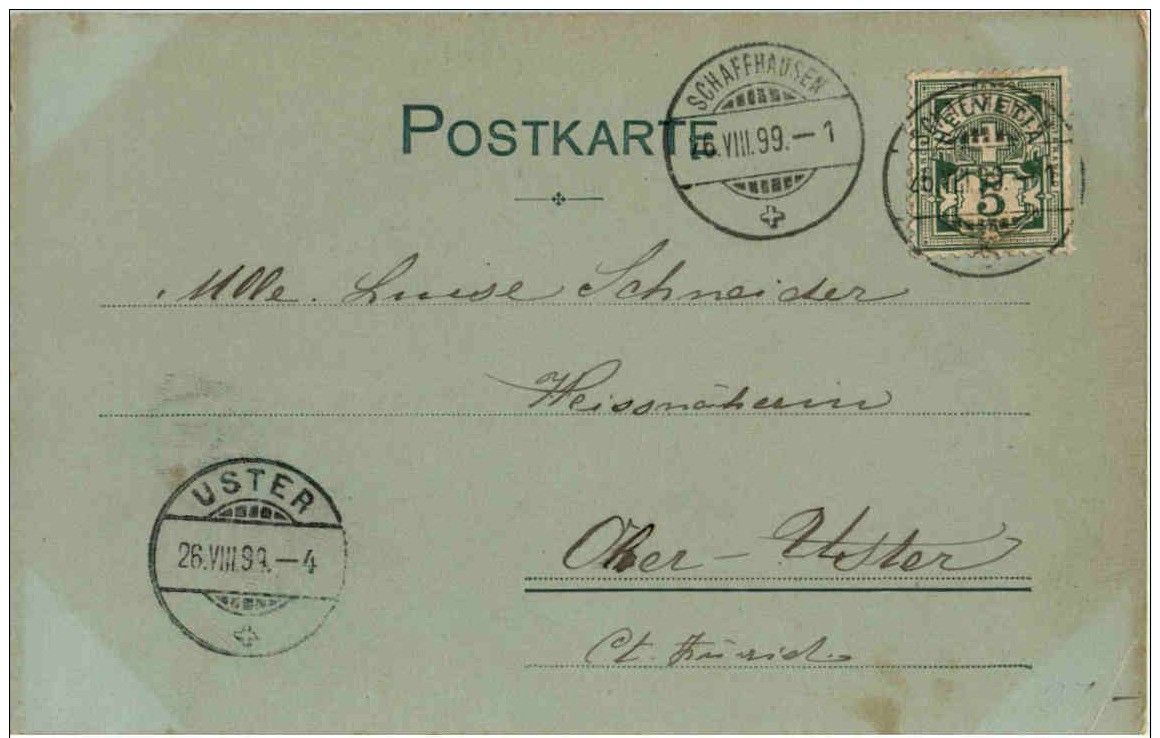 POSTKARTE
SCHAFFHAUSEN
26.VIII.99.–1
HELVETIA
5
Mlle. Luise Schneider
Weissnäherin
Ober-Uster
Ct. Zürich
USTER
26.VIII.99.–4